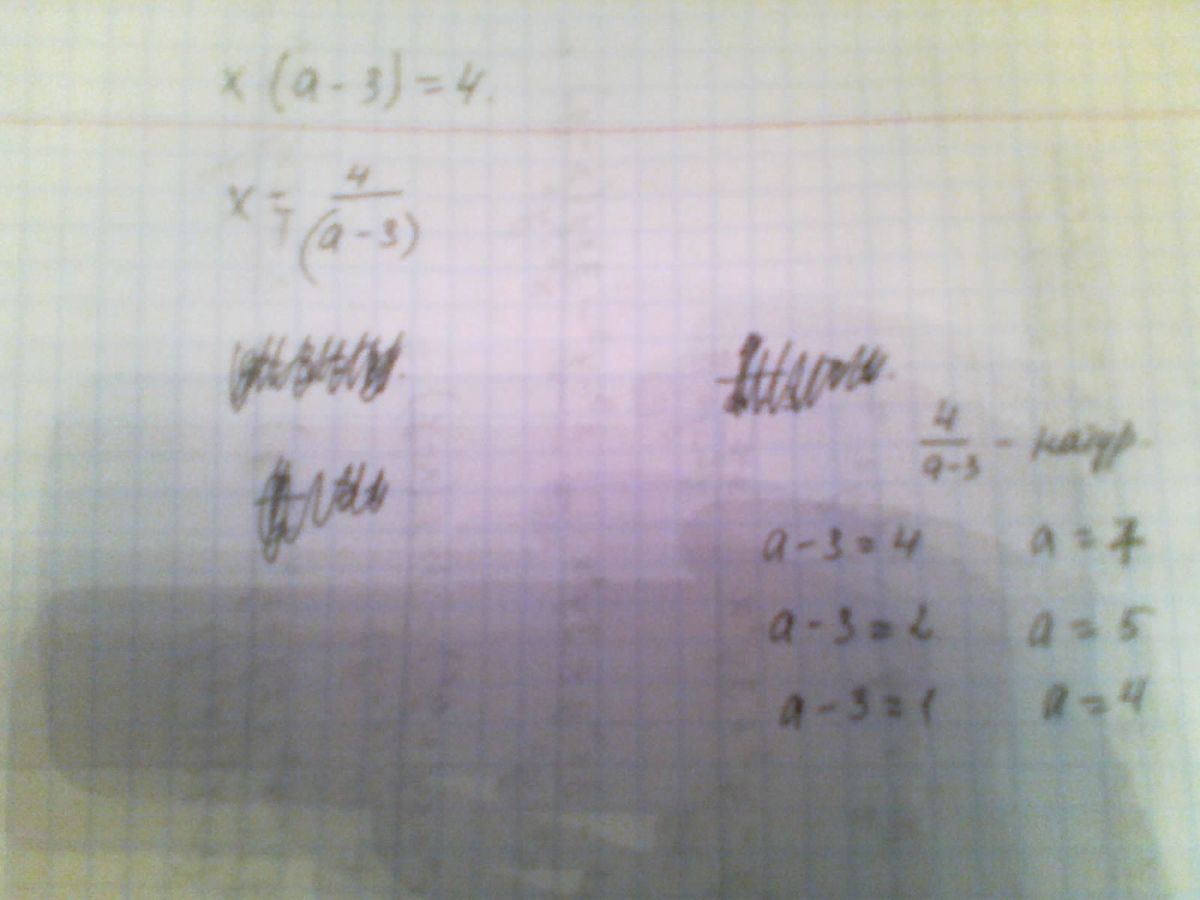 x (a - 3) = 4.
x = 4/(a - 3)
4/a-3 - натур.
a - 3 = 4 a = 7
a - 3 = 2 a = 5
a - 3 = 1 a = 4